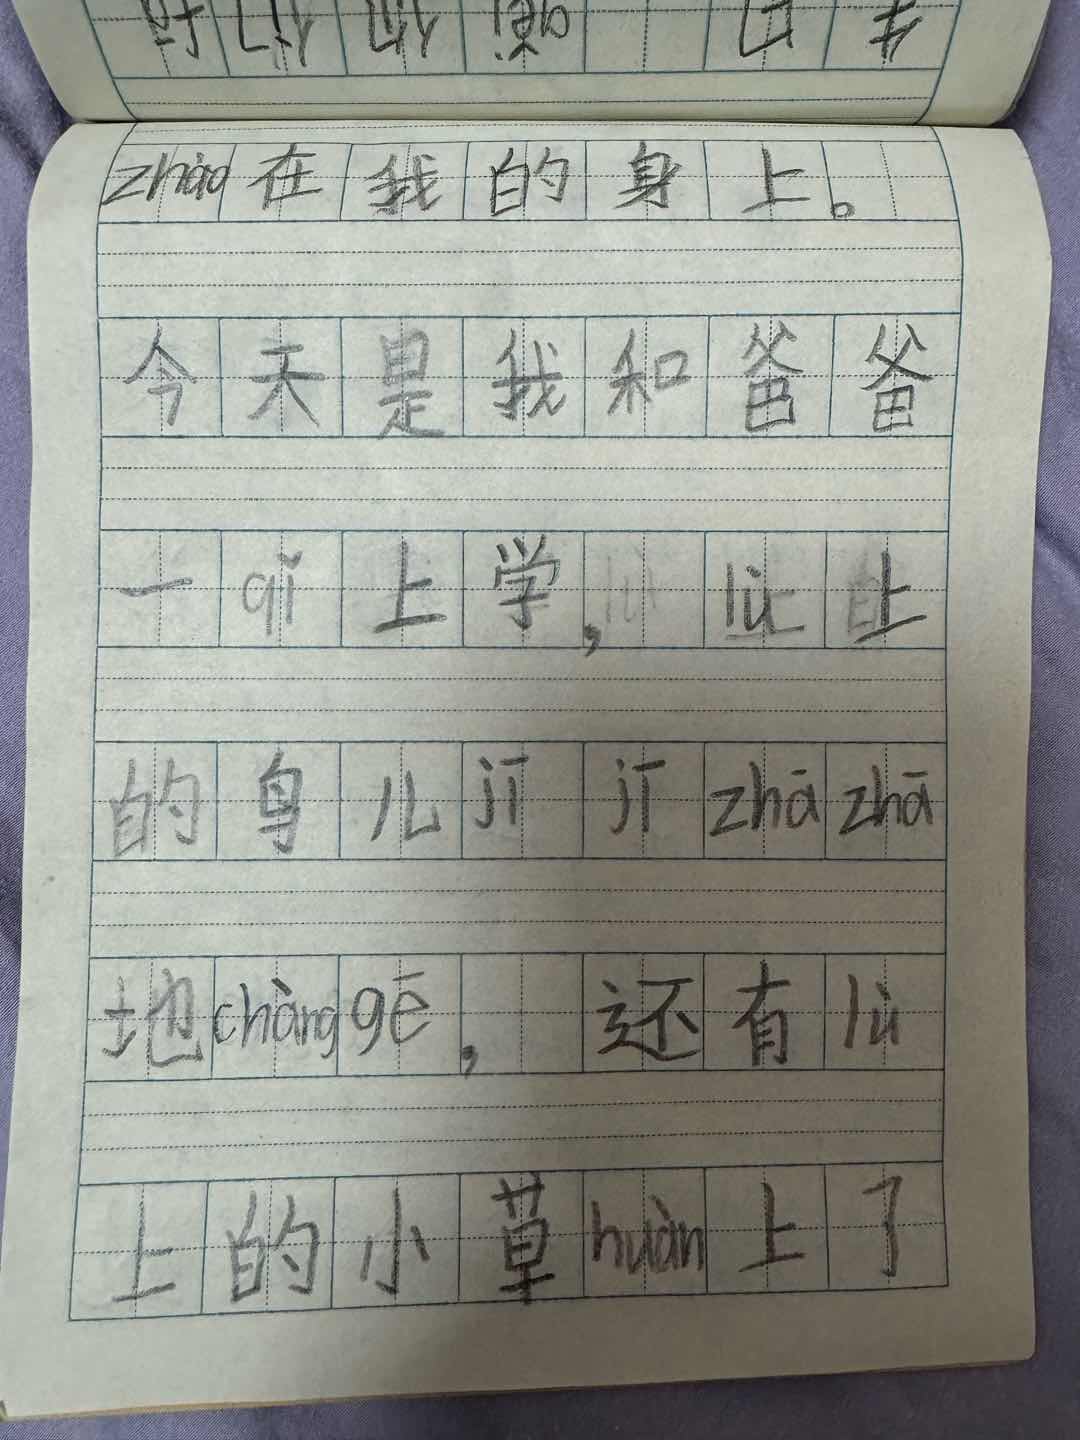 zhào在我的身上。
今天是我和爸爸
一qǐ上学,lù上
的鸟儿jī jī zhā zhā
地chàng gē,还有lù
上的小草huàn上了